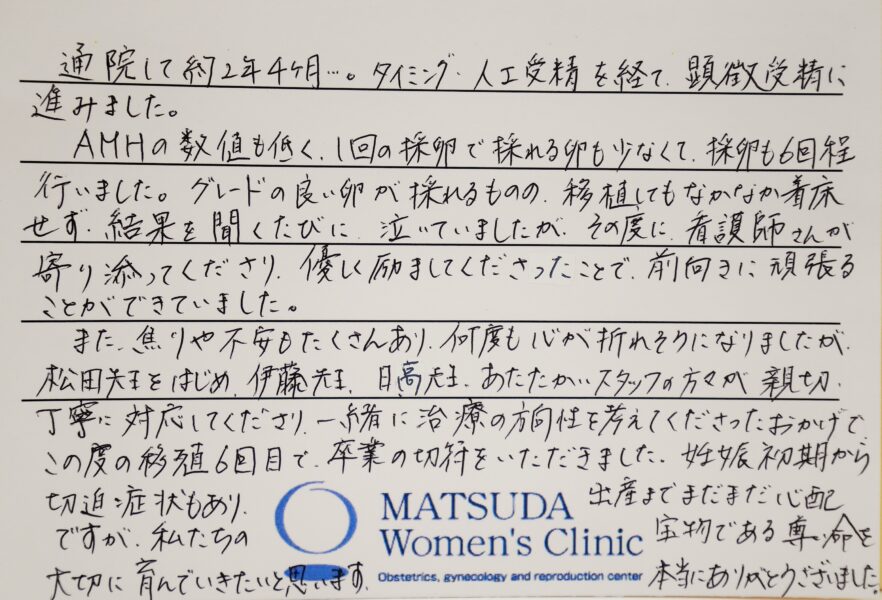 通院して約2年4ヶ月…。タイミング、人工受精を経て、顕微受精に
進みました。
AMHの数値も低く、1回の採卵で採れる卵も少なくて、採卵も6回程
行いました。グレードの良い卵が採れるものの、移植してもなかなか着床
せず、結果を聞くたびに、泣いていましたが、その度に、看護師さんが
寄り添ってくださり、優しく励ましてくださったことで、前向きに頑張る
ことができていました。
また、焦りや不安もたくさんあり、何度も心が折れそうになりましたが、
松田先生をはじめ、伊藤先生、日高先生、あたたかいスタッフの方々が親切、
丁寧に対応してくださり、一緒に治療の方向性を考えてくださったおかげで
この度の移殖6回目で、卒業の切符をいただきました。妊娠初期から
切迫症状もあり、出産までまだまだ心配
ですが、私たちの宝物である尊い命を
大切に育んでいきたいと思います。本当にありがとうございました。
MATSUDA
Women's Clinic
Obstetrics, gynecology and reproduction center